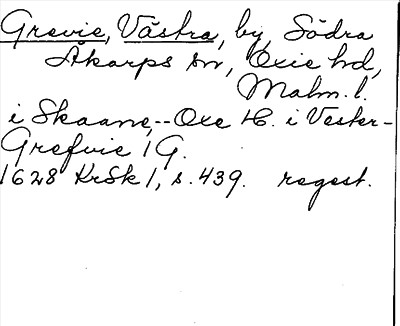 Grevie, Västra, by, Södra
Åkarps sn, Oxie hd,
Malm. l.
i Skaane,--Oxe H. i Vester-
Grefvie 1 G.
1628 KrSk 1, s. 439. regest.